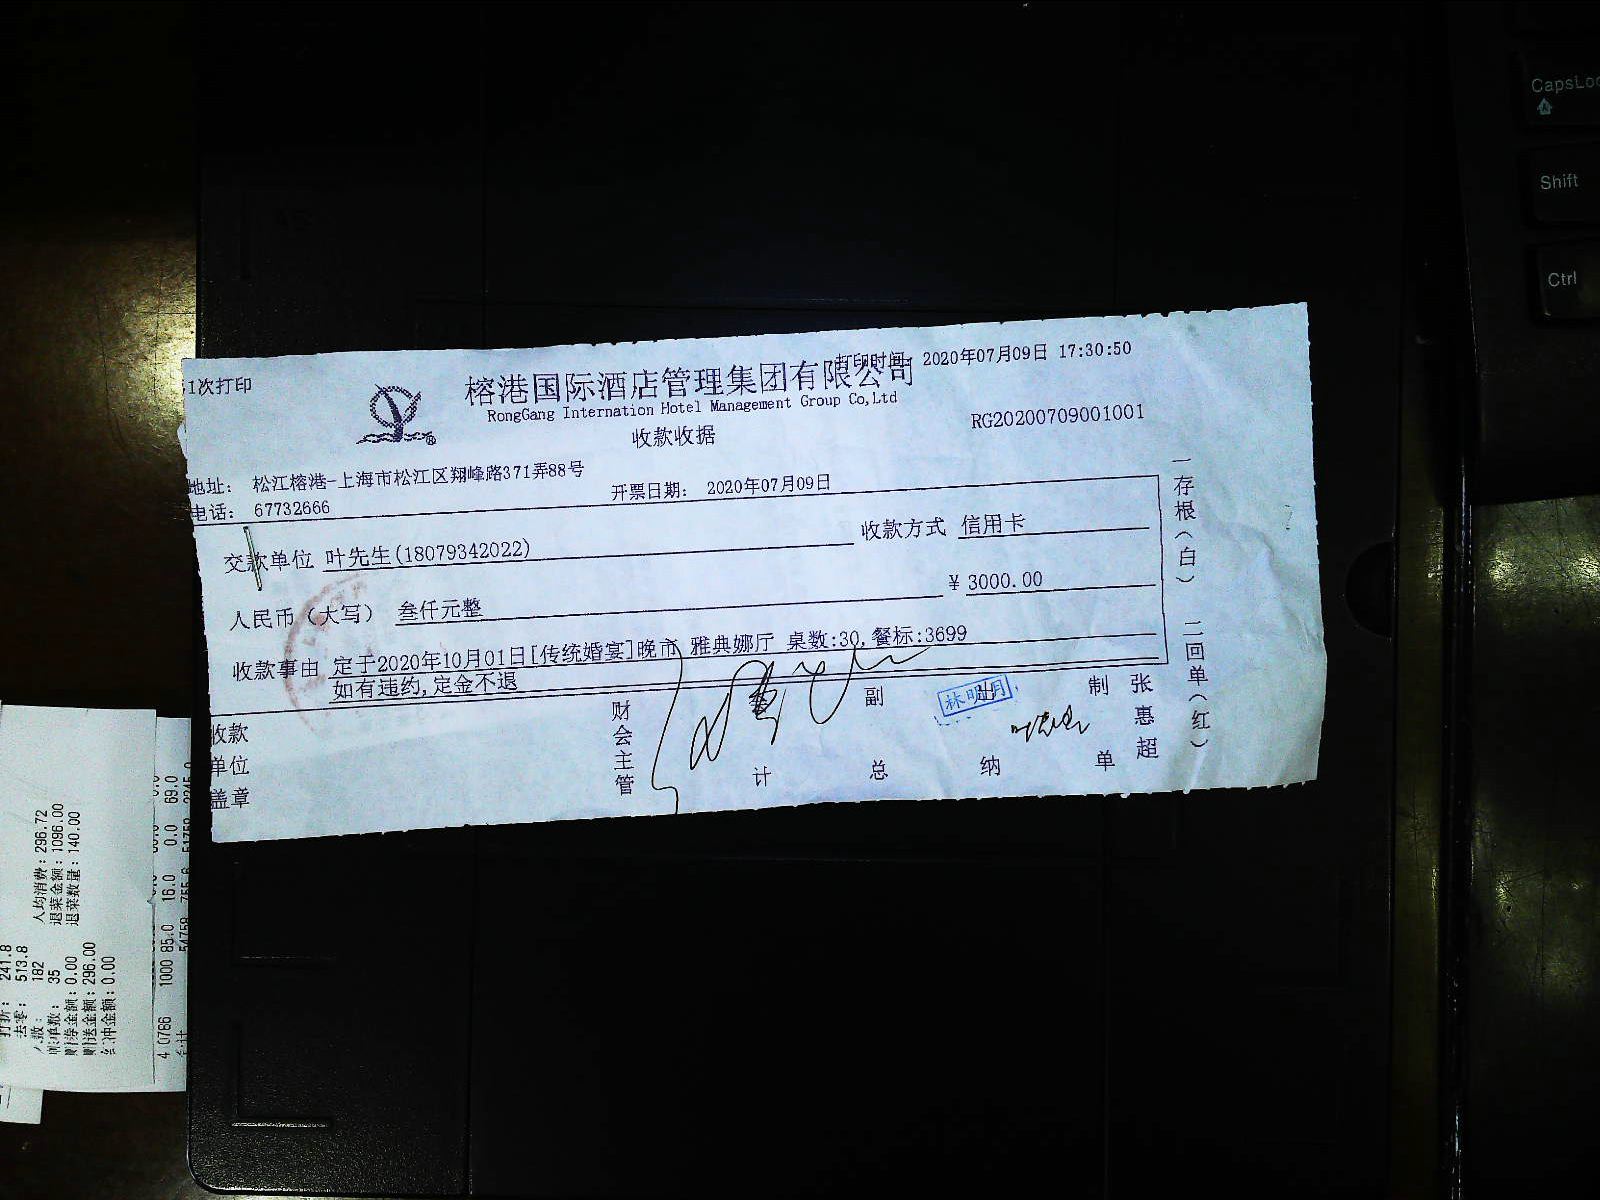 1次打印
打印时间: 2020年07月09日 17:30:50
榕港国际酒店管理集团有限公司
RongGang Internation Hotel Management Group Co,Ltd
收款收据
RG20200709001001
地址: 松江榕港-上海市松江区翔峰路371弄88号
电话: 67732666
开票日期: 2020年07月09日
交款单位 叶先生(18079342022)
收款方式 信用卡
人民币(大写) 叁仟元整
¥ 3000.00
收款事由 定于2020年10月01日[传统婚宴]晚市 雅典娜厅 桌数:30,餐标:3699
如有违约,定金不退
收款单位盖章
财会主管
计
副总
林明月
纳
制单
张惠超
一存根(白)
二回单(红)
CapsLoc
Shift
Ctrl
人均消费:296.72
退菜金额:1096.00
退菜数量:140.00
241.8
去零: 513.8
182
35
0.00
赠送金额:296.00
红冲金额:0.00
4 0786 1000 85.0 16.0 0.0 69.0